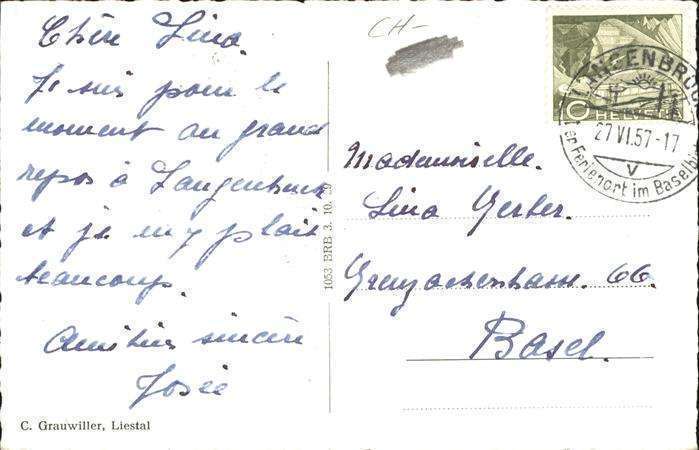 Chère Lina.
Je suis pour le
moment au grand
repos à Langenbruck
et je m'y plait
beaucoup.
Amitiés sincères
Josée
C. Grauwiller, Liestal
1053 BRB 3. 10. 39
CH-
10 HELVETIA
LANGENBRUCK
27 VI.57-17
V
der Ferienort im Baselb
Mademoiselle.
Lina Gerber.
Grenzacherstrasse. 66.
Basel.